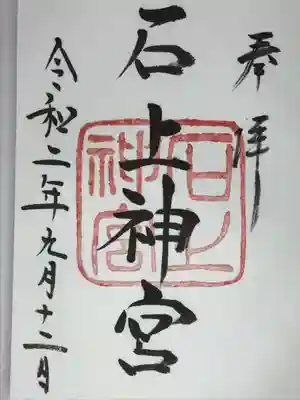 奉拝
石上神宮
石上
神宮
令和二年九月十二日